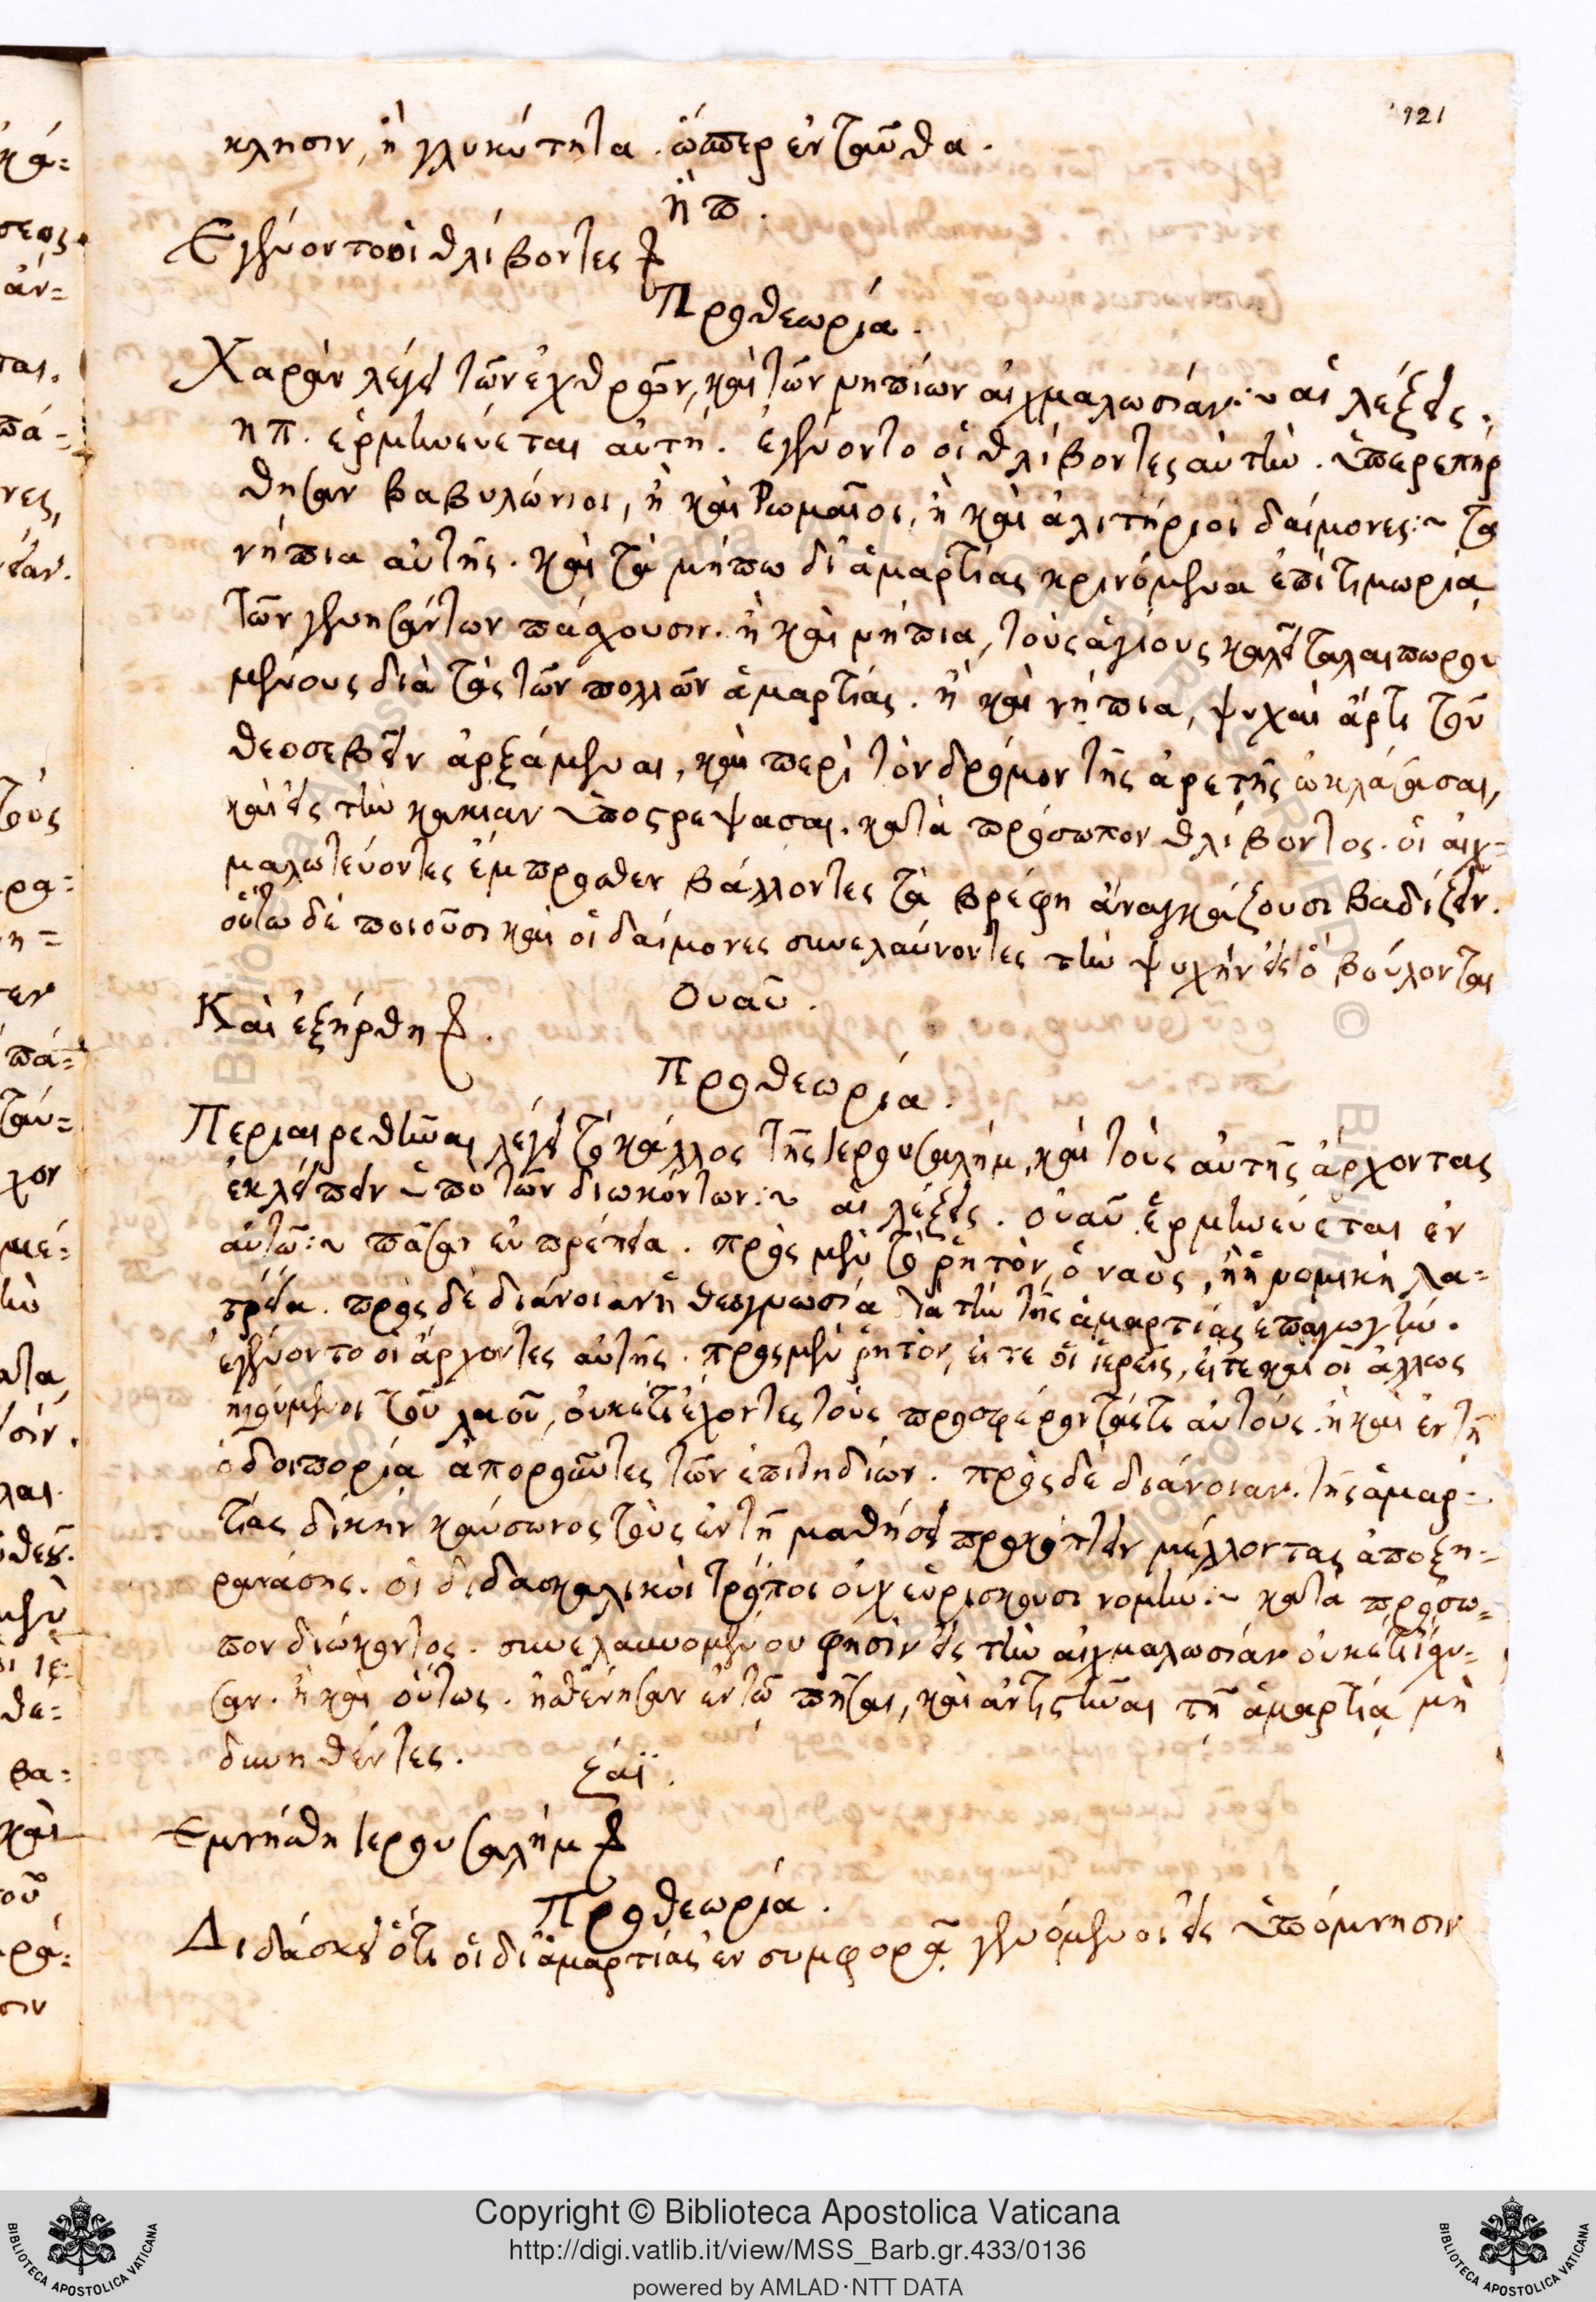 121
κλησιν, ἢ γλυκύτητα. ὥσπερ ἐνταῦθα.
ἢ π.
Ἐγένοντο οἱ θλίβοντες
Προθεωρία.
Χαρὰν λέγει τῶν ἐχθρῶν, καὶ τῶν νηπίων αἰχμαλωσίαν:~ αἱ λέξεις.
ηπ. ἑρμηνεύεται αὐτή. ἐγένοντο οἱ θλίβοντες αὐτὴν. ὑπερεπήρ
θησαν βαβυλώνιοι, ἢ καὶ Ῥωμαῖοι, ἢ καὶ ἀλιτήριοι δαίμονες:~ τὰ
νήπια αὐτῆς. καὶ τὰ μήπω δι' ἁμαρτίας κρινόμενα ἐπὶ τιμωρίᾳ
τῶν γεννησάντων πάσχουσιν. ἢ καὶ νήπια, τοὺς ἁγίους καλεῖ ταλαιπωρου
μένους διὰ τὰς τῶν πολλῶν ἁμαρτίας. ἢ καὶ νήπια, ψυχαὶ ἄρτι τοῦ
θεοσεβεῖν ἀρξάμεναι, καὶ περὶ τὸν δρόμον τῆς ἀρετῆς ὀκλάσασαι,
καὶ εἰς τὴν κακίαν ὑποστρέψασαι. κατὰ πρόσωπον θλίβοντος. οἱ αἰχ=
μαλωτεύοντες ἔμπροσθεν βάλλοντες τὰ βρέφη ἀναγκάζουσι βαδίζειν.
οὕτω δὲ ποιοῦσι καὶ οἱ δαίμονες συνελαύνοντες τὴν ψυχὴν εἰς ὃ βούλονται
Ουαῦ.
Καὶ ἐξήρθη.
Προθεωρία.
Περιαιρεθῆναι λέγει τὸ κάλλος τῆς Ιερουσαλήμ, καὶ τοὺς αὐτῆς ἄρχοντας
ἐκλείπειν ὑπὸ τῶν διωκόντων:~ αἱ λέξεις. οὐαῦ ἑρμηνεύεται ἐν
αὐτῷ:~ πᾶσα εὐπρέπεια. πρὸς μὲν τὸ ῥητὸν, ὁ ναὸς, ἢ ἡ νομικὴ λα=
τρεία. πρὸς δὲ διάνοιαν ἡ θεογνωσία διὰ τὴν τῆς ἁμαρτίας ἐπαγωγήν.
ἐγένοντο οἱ ἄρχοντες αὐτῆς. πρὸς μὲν ῥητὸν, εἴτε οἱ ἱερεῖς, εἴτε καὶ οἱ ἄλλως
ἡγούμενοι τοῦ λαοῦ, οὐκέτι ἔχοντες τοὺς προσφέροντάς τι αὐτούς. ἢ καὶ ἐν τῇ
ὁδοιπορίᾳ ἀποροῦντες τῶν ἐπιτηδίων. πρὸς δὲ διάνοιαν. τῆς ἁμαρ=
τίας δίκην καύσωνος τοὺς ἐν τῇ μαθήσει προκόπτειν μέλλοντας ἀποξη=
ρανάσης. οἱ διδασκαλικοὶ τρόποι οὐχ εὑρίσκουσι νομὴν:~ κατὰ πρόσω=
πον διώκοντος. συνελαυνομένου φησὶν εἰς τὴν αἰχμαλωσίαν οὐκέτι ἴσχυ=
σαν. ἢ καὶ οὕτως. ἠσθένησαν ἐν τῷ πῆσαι, καὶ ἀντιστῆναι τῇ ἁμαρτίᾳ μὴ
δυνηθέντες.
ζάϊ.
Ἐμνήσθη Ιερουσαλὴμ
Προθεωρία.
Διδάσκει ὅτι οἱ δι' ἁμαρτίας ἐν συμφορᾷ γενόμενοι εἰς ὑπόμνησιν
Copyright © Biblioteca Apostolica Vaticana
http://digi.vatlib.it/view/MSS_Barb.gr.433/0136
powered by AMLAD·NTT DATA